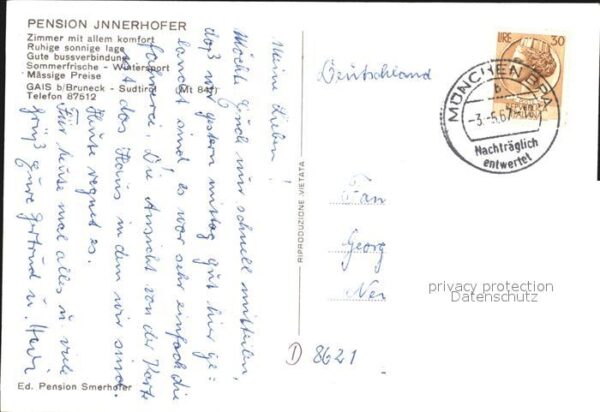 PENSION JNNERHOFER
Zimmer mit allem komfort
Ruhige sonnige lage
Gute bussverbindung
Sommerfrische - Wintersport
Mässige Preise
GAIS b/Bruneck - Sudtirol (Mt 841)
Telefon 87512
Meine Lieben!
Möchte Euch nur schnell mitteilen,
daß wir gestern mittag gut hier ge=
landet sind, es war sehr einfach die
Fahrerei. Die Ansicht von der Karte
ist das Haus in dem wir sind.
Heute regnet es.
Für heute mal alles u. viele
Grüße Eure Gertrud u.
Ed. Pension Smerhofer
RIPRODUZIONE VIETATA
LIRE 30
MÜNCHEN BPA
b
-3.-5.67
Nachträglich
entwertet
Deutschland
Fam
Georg
Neu
privacy protection
Datenschutz
D 8621